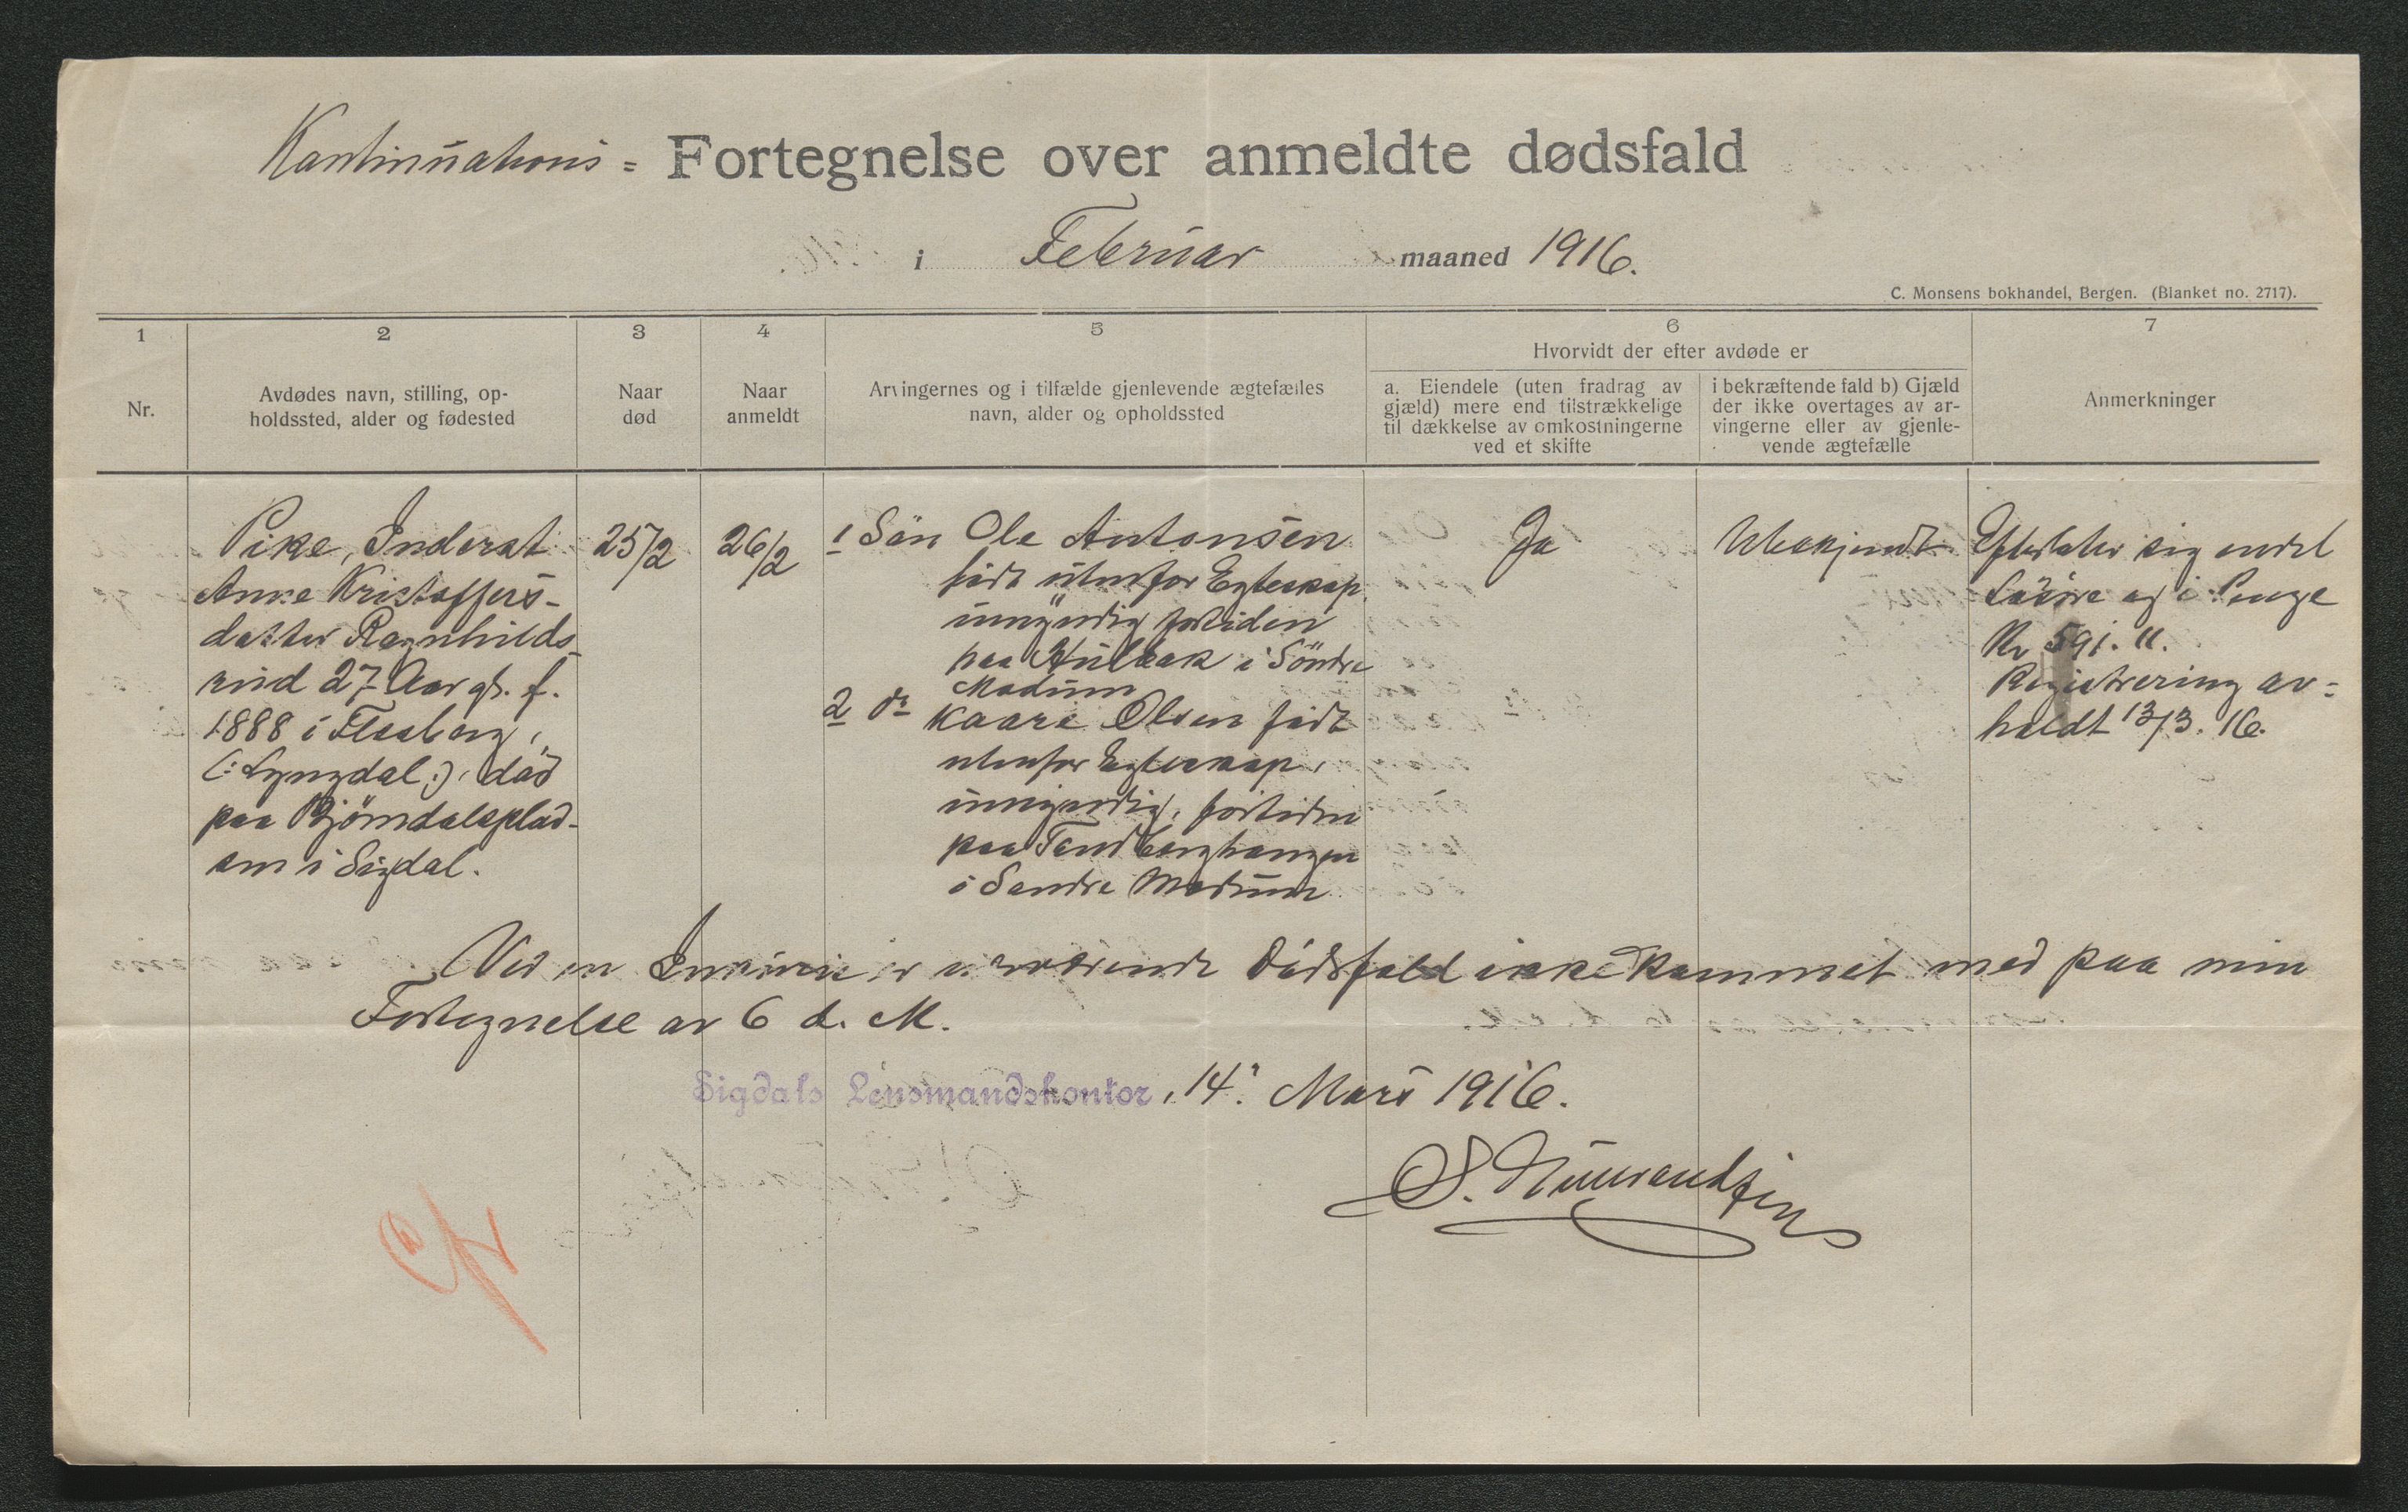 Kontinuations = Fortegnelse over anmeldte dødsfald
i Februar maaned 1916.
C. Monsens bokhandel, Bergen. (Blanket no. 2717).
1
Nr.
2
Avdødes navn, stilling, op-
holdssted, alder og fødested
3
Naar
død
4
Naar
anmeldt
5
Arvingernes og i tilfælde gjenlevende ægtefælles
navn, alder og opholdssted
6
Hvorvidt der efter avdøde er
a. Eiendele (uten fradrag av
gjæld) mere end tilstrækkelige
til dækkelse av omkostningerne
ved et skifte
i bekræftende fald b) Gjæld
der ikke overtages av ar-
vingerne eller av gjenle-
vende ægtefælle
7
Anmerkninger
Pike, Inderst
Anne Kristoffers-
datter Ragnhilds-
rud 27 Aar gl. f.
1888 i Flesberg,
(: Lyngdal :), død
paa Bjørndalsplad-
sen i Sigdal.
25/2
26/2
1 Søn Ole Antonsen
født utenfor Egteskap,
umyndig fortiden
paa Hulbak i Søndre
Modum
2 do Kaare Olsen født
utenfor Egteskap,
umyndig, fortiden
paa Tandberghaugen
i Søndre Modum
Ja
Ubekjendt
Efterlater sig endel
Løsøre og i Penge
Kr 591.11.
Registrering av=
holdt 13/3. 16.
Ved en Inkurie er nærværende Dødsfald ikke kommet med paa min
Fortegnelse av 6 d. M.
Sigdals Lensmandskontor, 14. Mars 1916.